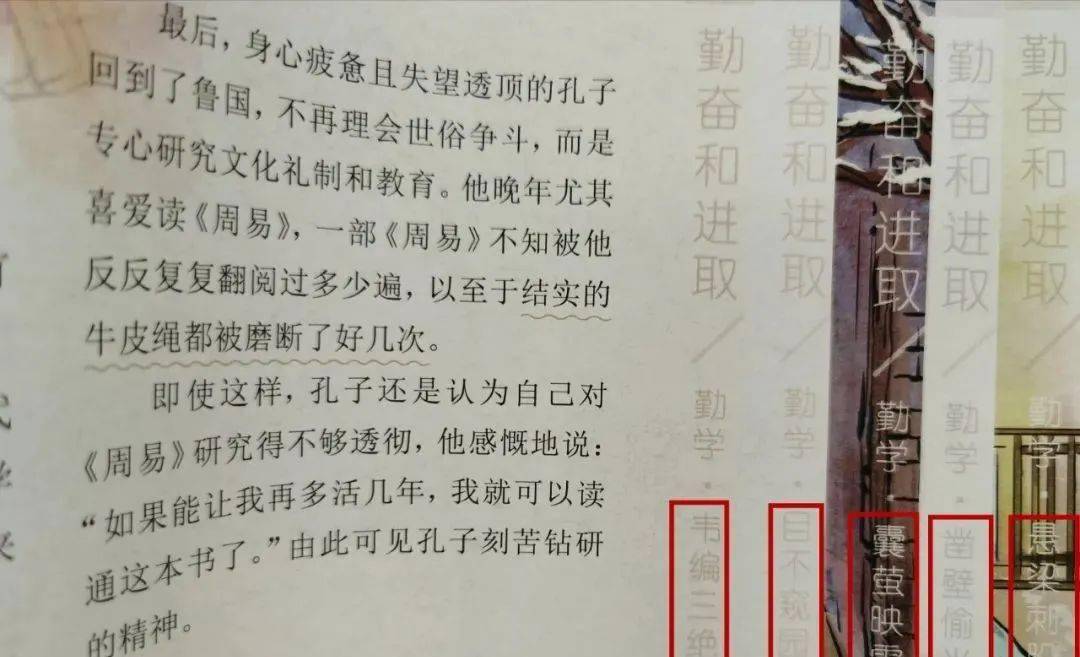 最后，身心疲惫且失望透顶的孔子
回到了鲁国，不再理会世俗争斗，而是
专心研究文化礼制和教育。他晚年尤其
喜爱读《周易》，一部《周易》不知被他
反反复复翻阅过多少遍，以至于结实的
牛皮绳都被磨断了好几次。
即使这样，孔子还是认为自己对
《周易》研究得不够透彻，他感慨地说：
“如果能让我再多活几年，我就可以读
通这本书了。”由此可见孔子刻苦钻研
的精神。
勤奋和进取／勤学·韦编三绝
勤奋和进取／勤学·目不窥园
勤奋和进取／勤学·囊萤映
勤奋和进取／勤学·凿壁偷
勤奋和进取／勤学·悬梁刺